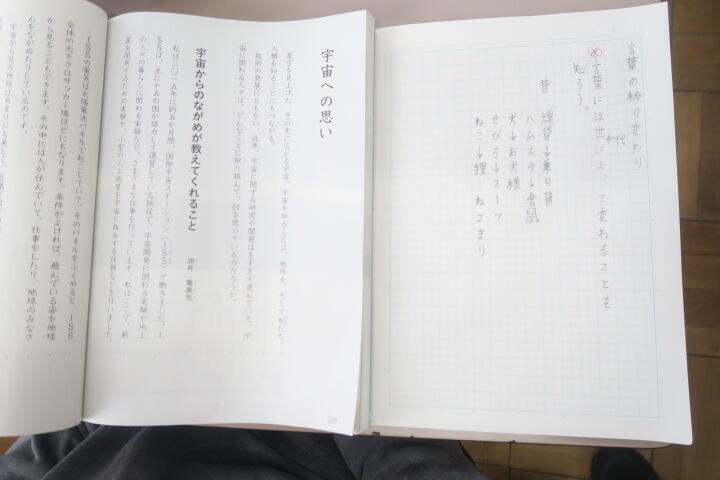 言葉の移り変わり
め 言葉には世によって変わることを
代
知ろう。
昔
ハムスタ→倉鼠
犬→お犬様
せびろ→スーツ
ねこ→狸・ねこまり
宇宙への思い
星空を見上げた、その先に広がる宇宙。宇宙を知ることは、地球を、そして私たち
人類を知ることにもつながる。
技術の発展にともない、近年、宇宙に関する研究や開発はますます進んでいる。宇
宙に関わる人々は、どんなことに取り組んで、何を思っているのだろうか。
宇宙からのながめが教えてくれること
油井 亀美也
私は二〇一五年に約五か月間、国際宇宙ステーション(ISS)で働きました。I
SSは、主に十五の国が協力して運営している施設で、宇宙開発に関わる実験や地上
の人々の暮らしに関わる実験など、さまざまな仕事を行っています。私はここで、新
薬を開発するための実験や、小型の人工衛星を宇宙に放出する任務などを行いました。
ISSの電気は太陽電池パネルで起こしていて、そのパネルをふくめると、ISS
全体の大きさはサッカー場ほどにもなります。条件がよければ、飛んでいる姿を地球
から見ることもできます。その中には人が住んでいて、仕事をしたり、地球のみなさ
んをながめたりしているのです。
宇宙から見る地球はあまりにも美しく、